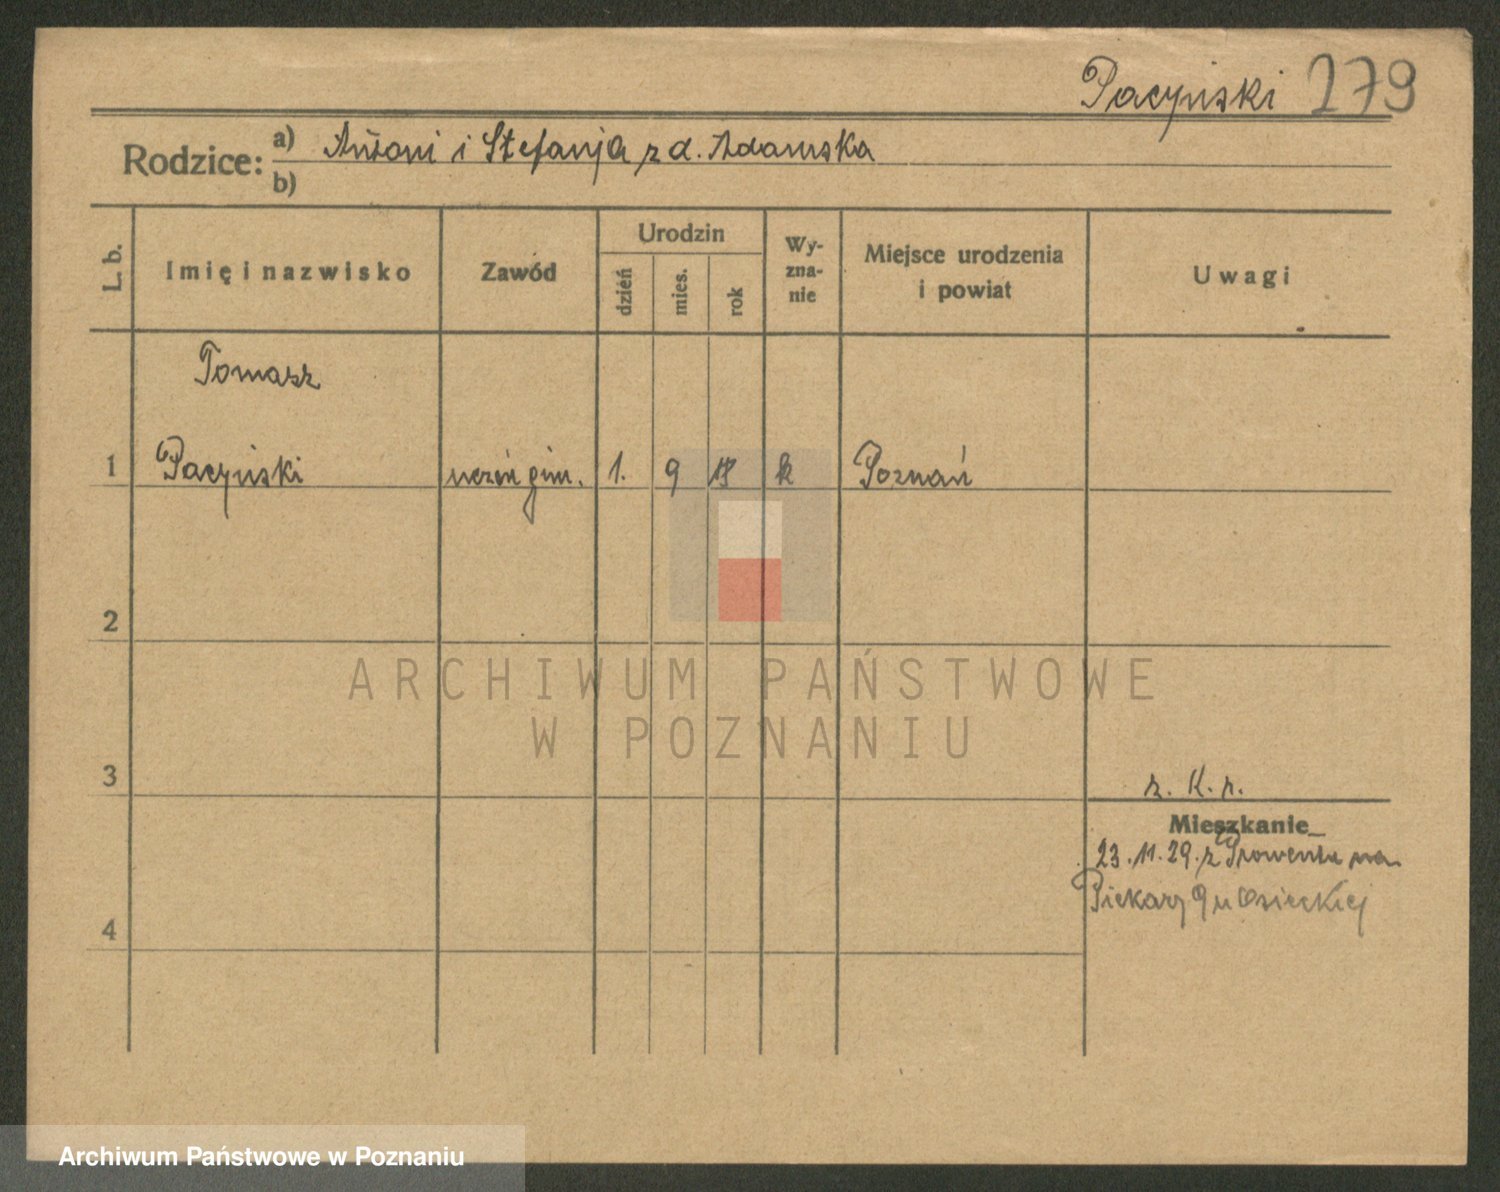 Pacyński 279
Rodzice: a) Antoni i Stefanja z d. Adamska
b)
L. b. Imię i nazwisko Zawód Urodzin dzień mies. rok Wy-zna-nie Miejsce urodzenia i powiat Uwagi
Tomasz
1 Pacyński uczeń gim. 1. 9 Poznań
2
ARCHIWUM PAŃSTWOWE
W POZNANIU
3
z. K. r.
Mieszkanie
23.11.29. z Prowenta na
Piekary 9 u Osieckiej
4
Archiwum Państwowe w Poznaniu